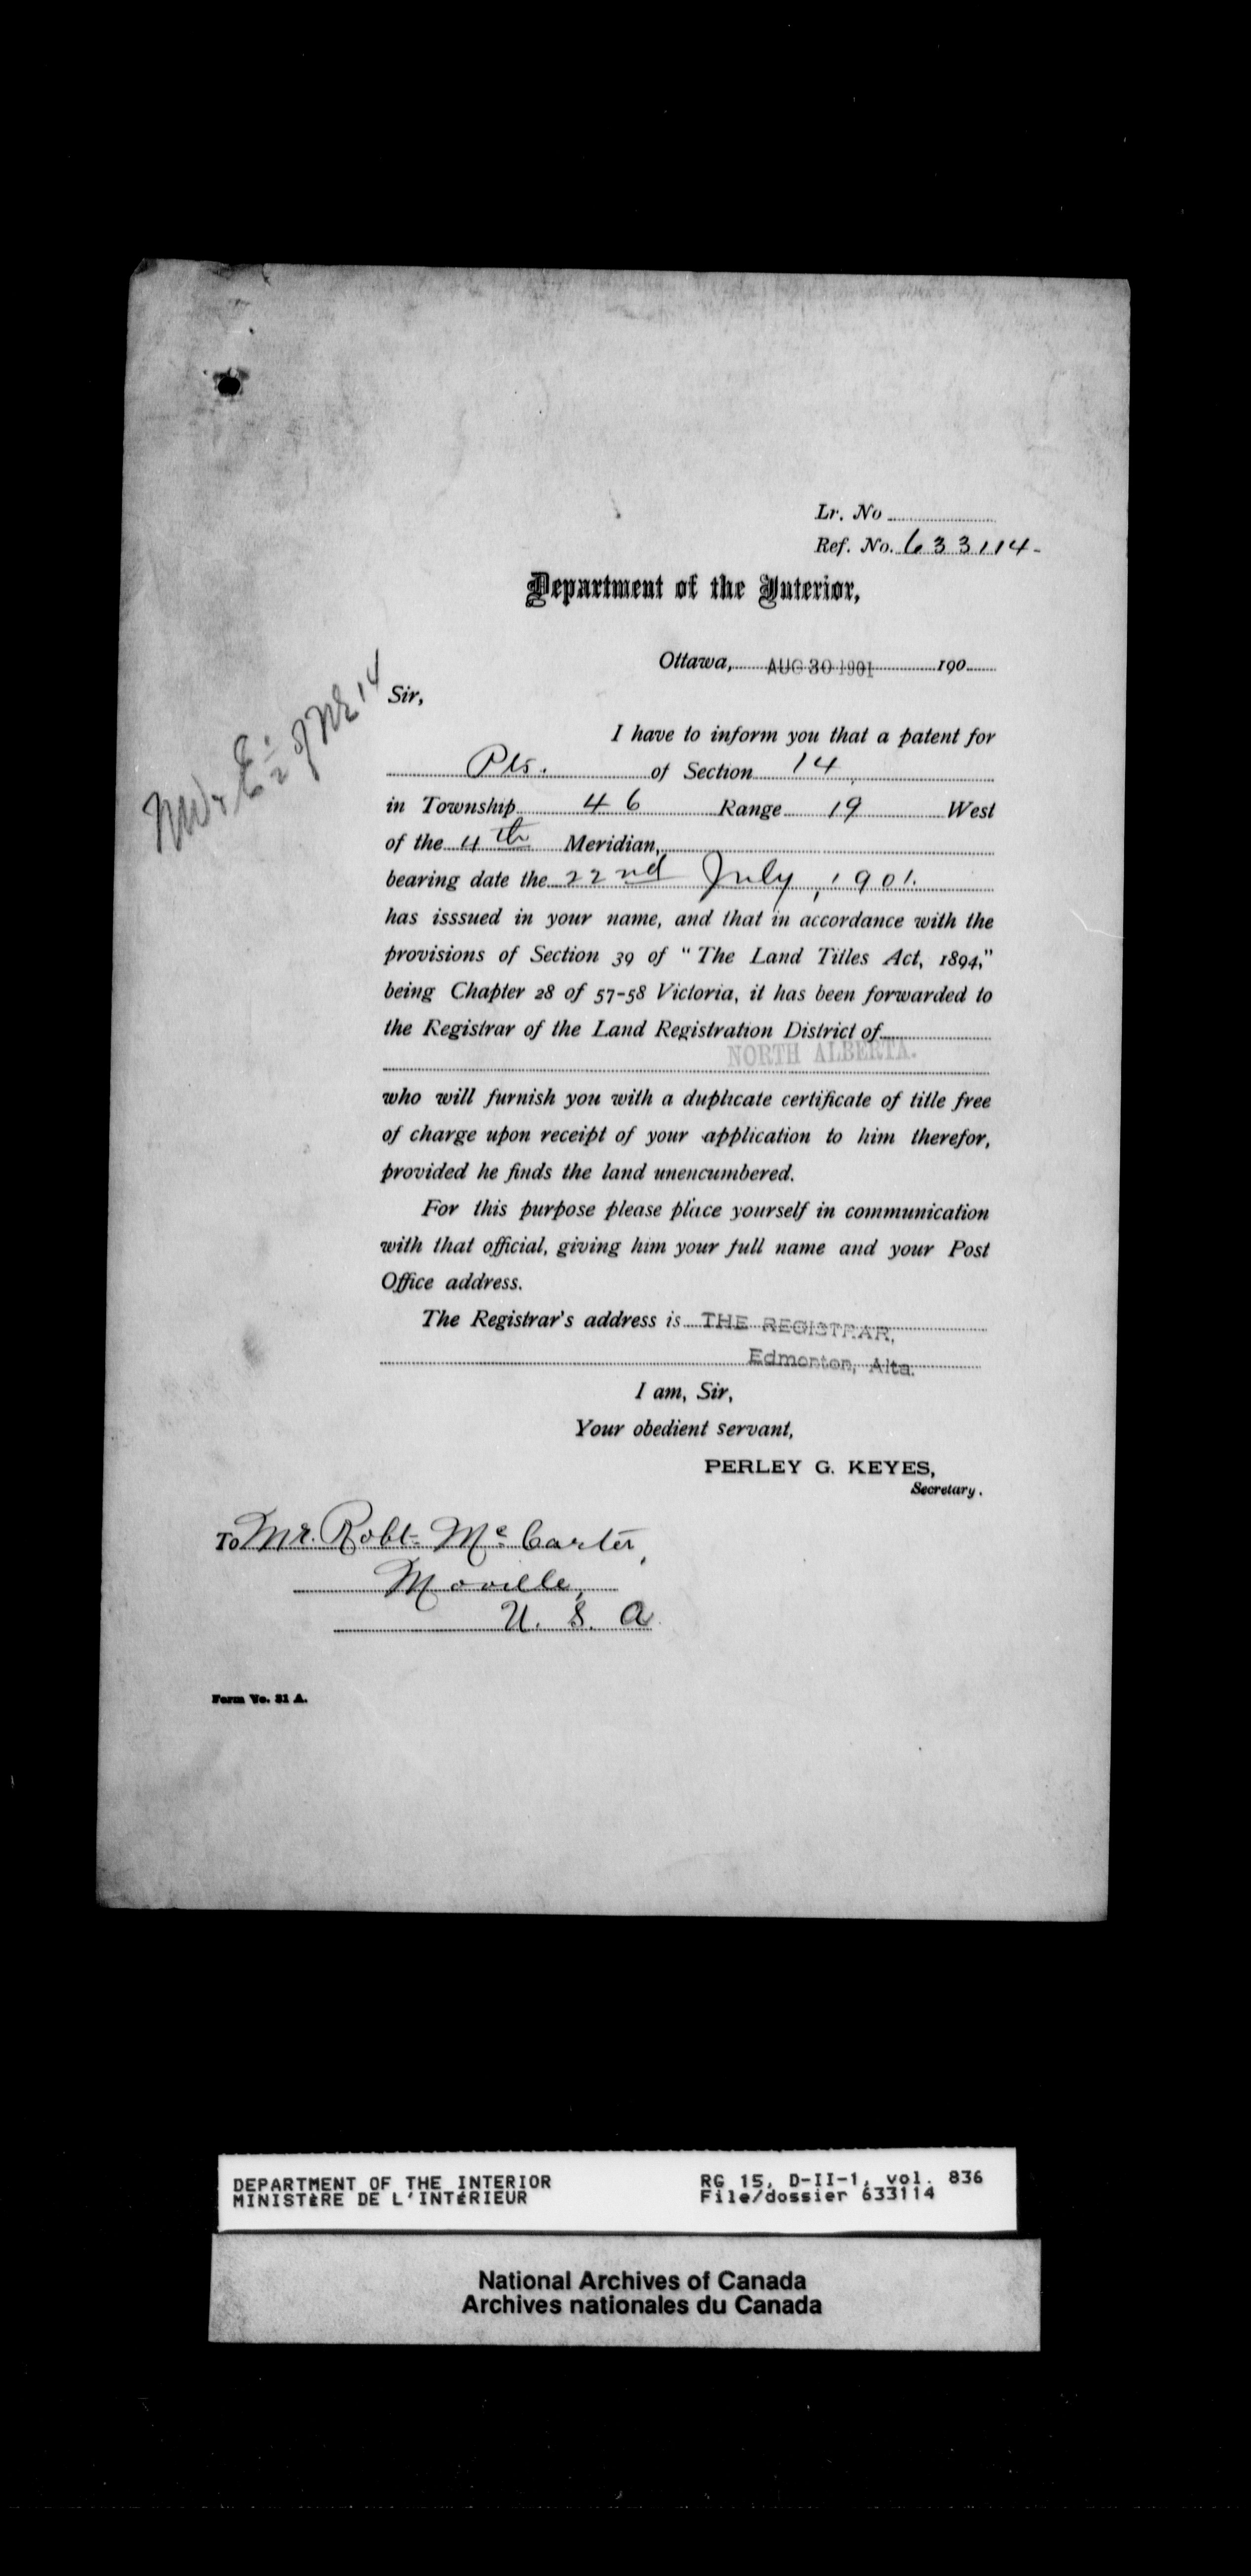 Lr. No
Ref. No. 633114-
Department of the Interior,
Ottawa, AUG 30 1901 190
NW & E ½ of NE 14
Sir,
I have to inform you that a patent for
Pts. of Section 14
in Township 46 Range 19 West
of the 4th Meridian,
bearing date the 22nd July, 1901.
has isssued in your name, and that in accordance with the
provisions of Section 39 of "The Land Titles Act, 1894,"
being Chapter 28 of 57-58 Victoria, it has been forwarded to
the Registrar of the Land Registration District of
NORTH ALBERTA.
who will furnish you with a duplicate certificate of title free
of charge upon receipt of your application to him therefor,
provided he finds the land unencumbered.
For this purpose please place yourself in communication
with that official, giving him your full name and your Post
Office address.
The Registrar's address is THE REGISTRAR,
Edmonton, Alta.
I am, Sir,
Your obedient servant,
PERLEY G. KEYES,
Secretary.
To Mr. Robt. McCarter,
Moville,
U. S. A.
Form No. 31 A.
DEPARTMENT OF THE INTERIOR RG 15, D-II-1, vol. 836
MINISTÈRE DE L'INTÉRIEUR File/dossier 633114
National Archives of Canada
Archives nationales du Canada